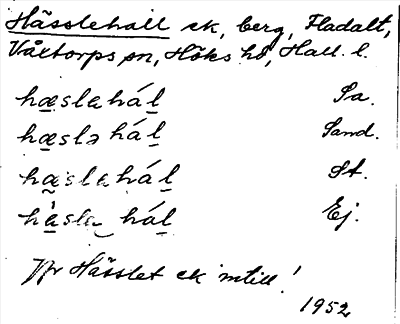 Hässlehall ek, berg, Fladalt,
Våxtorps sn, Höks hd, Hall. l.
hæslahál Pa.
hæslə hál Sand.
hæslahál St.
hàsla hál Ej.
Jfr Hässlet ek intill!
1952